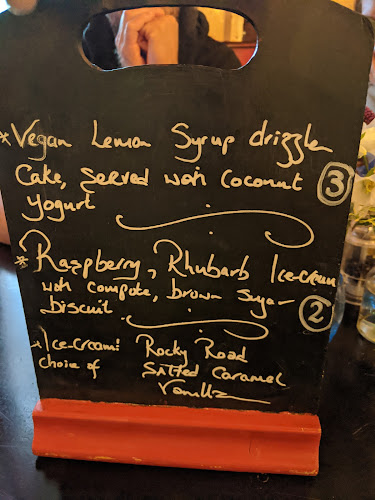 * Vegan Lemon Syrup drizzle
Cake, Served with Coconut
Yogurt
③
* Raspberry, Rhubarb Ice-cream
with compote, brown sugar
biscuit
②
* Ice-cream: Rocky Road
choice of Salted Caramel
Vanilla